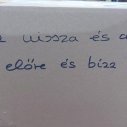 vissza és
előre és bízz